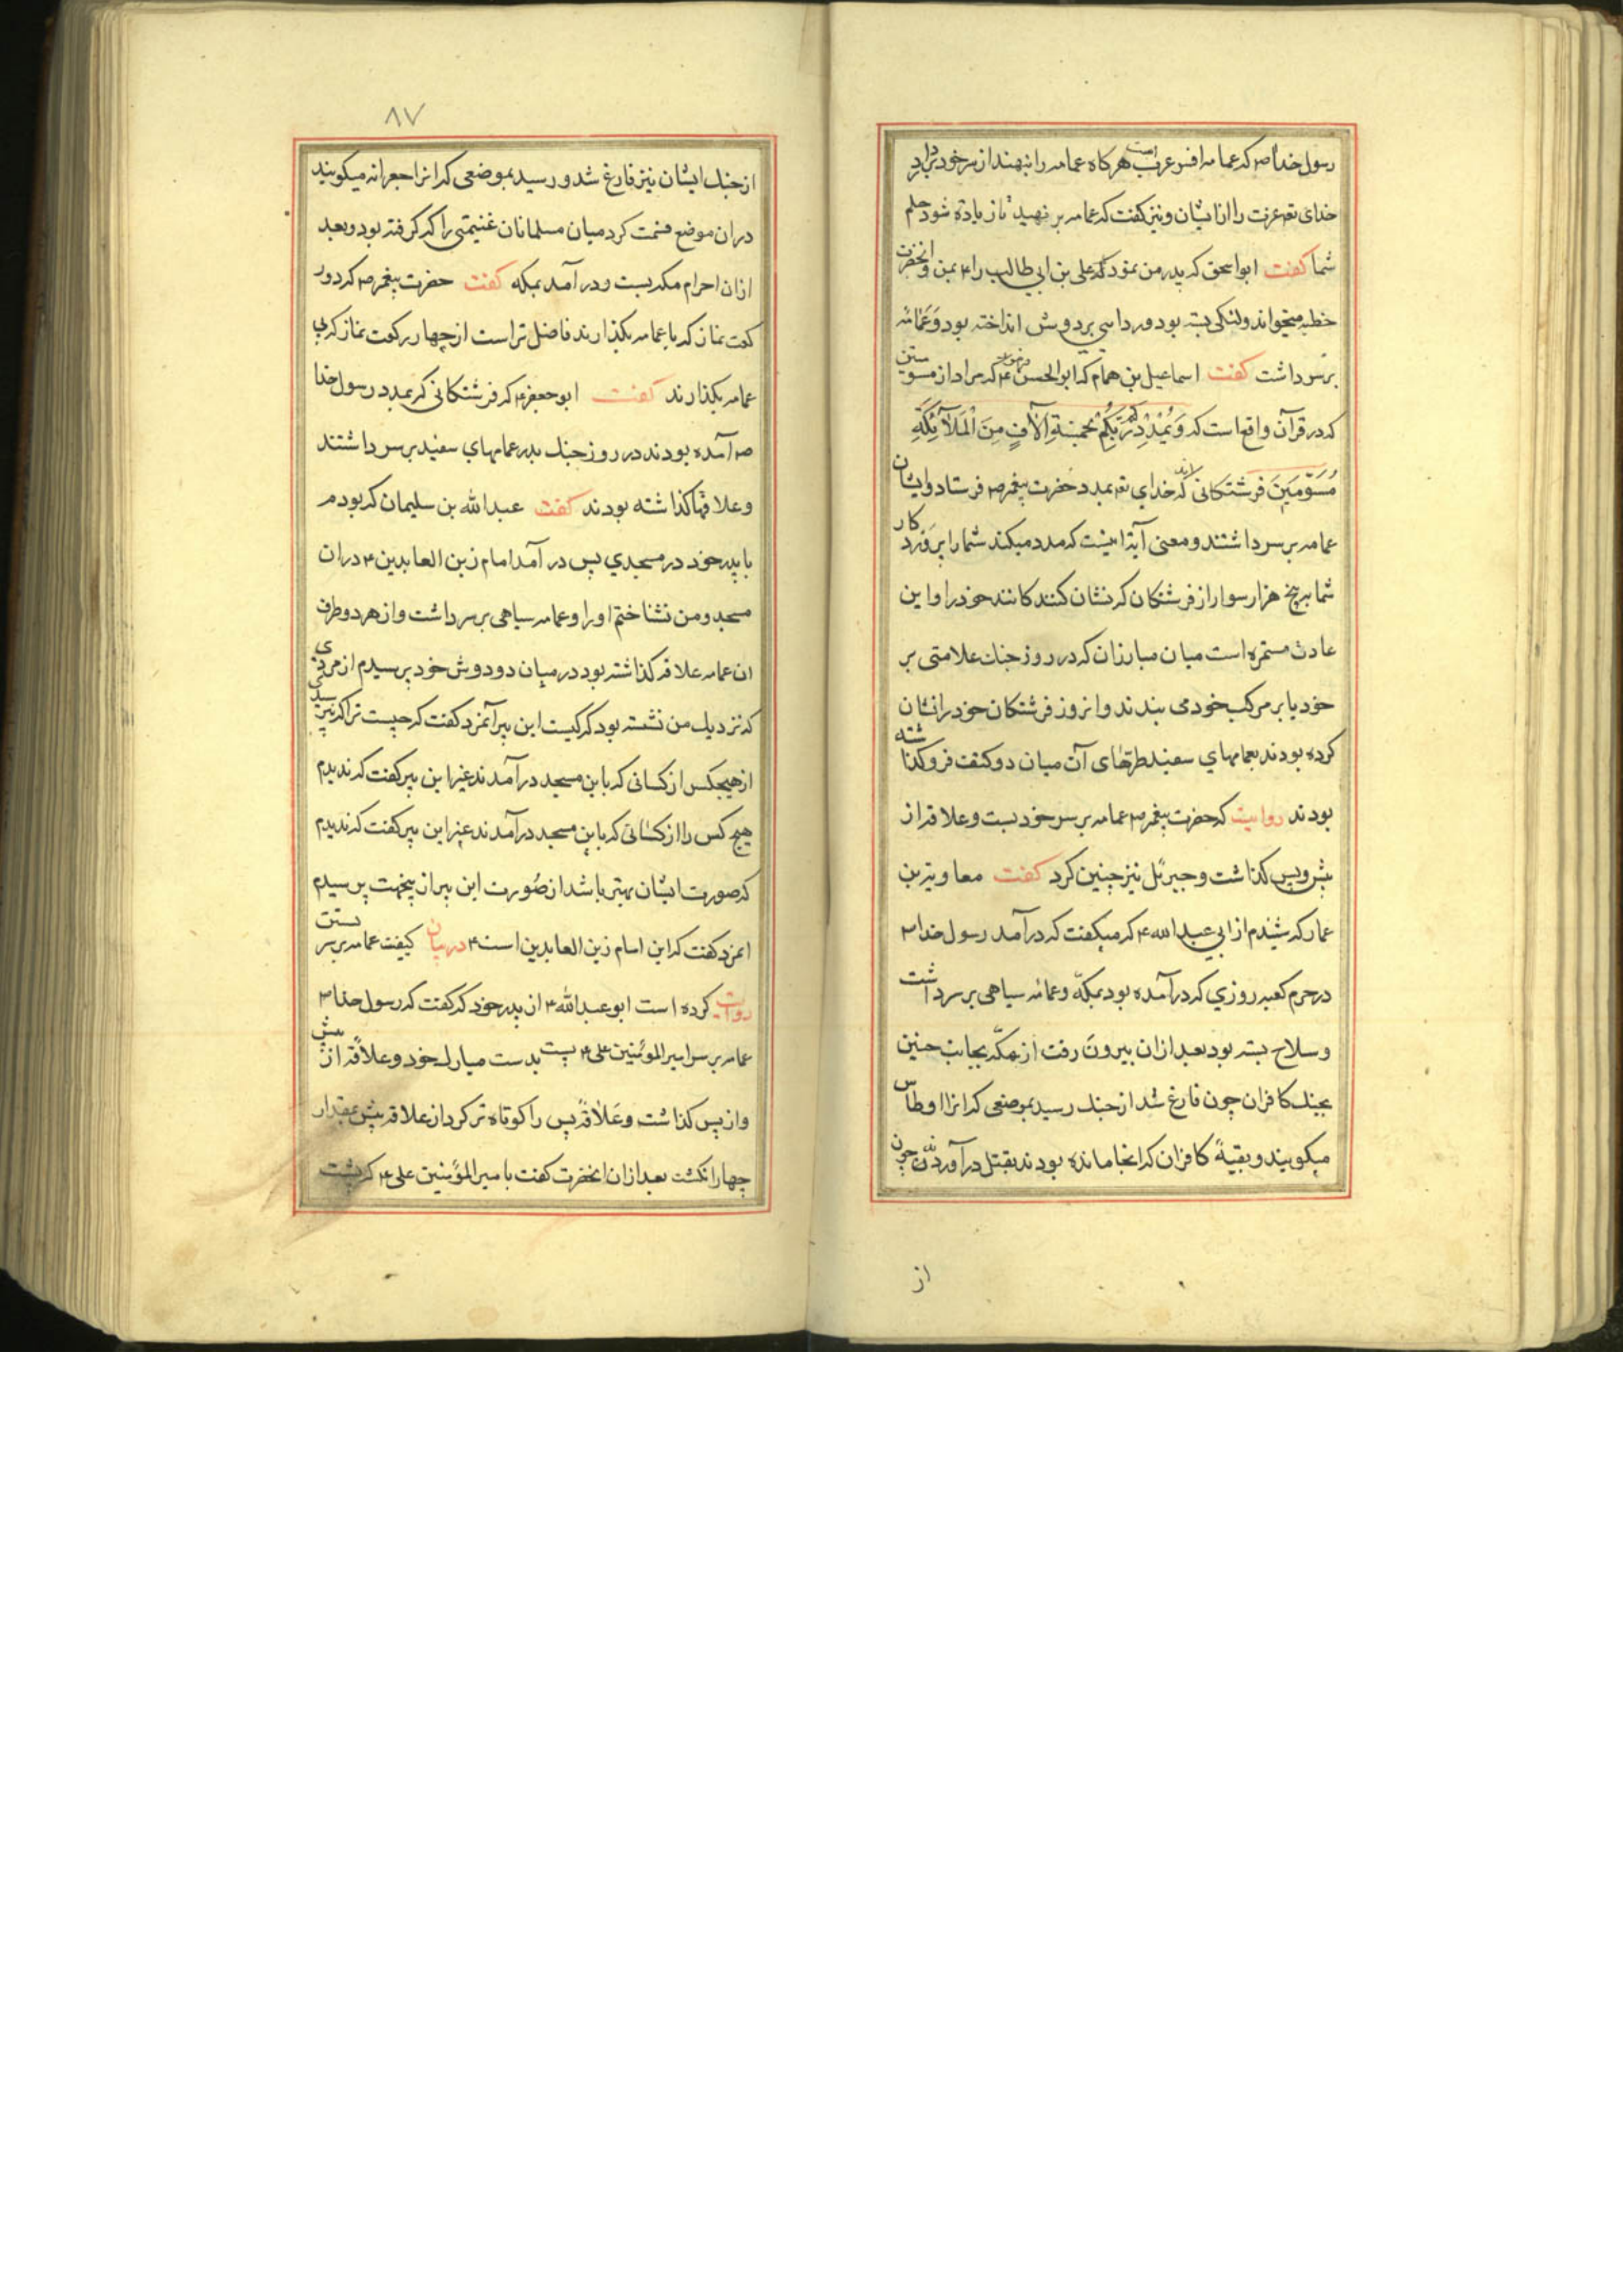 رسول خدا ص که عمامه افسر عرب است هرکاه عمامه را بنهند از سر خود بردارد
خدای تع عزت را از ایشان و نیز کفت که عمامه بر نهید تا زیاده شود حلم
شما کفت ابو اسحق که پدر من نمود که علی بن ابی طالب را ع بمن و آنحضرت
خطبه میخواند و لنکی بسته بود و ردایی بر دوش انداخته بود و عمامه
بر سر داشت کفت اسماعیل بن همام که ابو الحسن ع فرمود که مراد از مسومین
که در قرآن واقع است که وَيُمْدِدْكُمْ رَبُّكُمْ بِخَمْسَةِ آلَافٍ مِنَ الْمَلَآئِكَةِ
مُسَوِّمِينَ فرشتکانی اند که خدای تع بمدد حضرت پیغمبر ص فرستاد و ایشان
عمامه بر سر داشتند و معنی آیه اینست که مدد میکند شما را پرورد کار
شما به پنج هزار سوار از فرشتکان که نشان کنند کانند خود را و این
عادت مستمره است میان مبارزان که در روز جنک علامتی بر
خود یا بر مرکب خود می بندند و انروز فرشتکان خود را نشان
کرده بودند بعمامهای سفید طرفهای آن میان دو کتف فرو کذا شته
بودند روایت که حضرت پیغمبر ص عمامه بر سر خود بست و علاقه از
پیش و پس کذاشت و جبرئل نیز چنین کرد کفت معاویة بن
عمار که شنیدم از ابی عبد الله ع که میکفت که درآمد رسول خدا ص
در حرم کعبه روزی که درآمده بود بمکه و عمامه سیاهی بر سر داشت
و سلاح بسته بود بعد ازان بیرون رفت از مکه بجانب حنین
بجنک کافران چون فارغ شد از جنک رسید بموضعی که انرا اوطاس
میکویند و بقیه کافران که انجا مانده بودند بقتل درآوردند چون
از
٨٧
از جنک ایشان نیز فارغ شد و رسید بموضعی که انرا جعرانه میکویند
دران موضع قسمت کرد میان مسلمانان غنیمتی را که کرفته بود و بعد
ازان احرام مکه بست و در آمد بمکه کفت حضرت پیغمبر ص که دور
کعت نماز که با عمامه بکذارند فاضل تر است از چهار رکعت نماز که بی
عمامه بکذارند کفت ابو جعفر ع که فرشتکانی که بمدد رسول خدا
ص آمده بودند در روز جنک بدر عمامهای سفید بر سر داشتند
و علاقها کذاشته بودند کفت عبد الله بن سلیمان که بودم
با پدر خود در مسجدی پس در آمد امام زین العابدین ع دران
مسجد و من نشناختم او را و عمامه سیاهی بر سر داشت و از هر دو طرف
ان عمامه علاقه کذاشته بود در میان دو دوش خود پرسیدم از مردی
که نزدیک من نشسته بود که کیست این پیر آنمرد کفت که چیست ترا که نپرسیدی
از هیچکس از کسانی که باین مسجد درآمدند غیر این پیر کفت که ندیدم
هیچ کس را از کسانی که باین مسجد درآمدند غیر این پیر کفت که ندیدم
که صورت ایشان بهتر باشد از صورت این پیر از ینجهت پرسیدم
انمرد کفت که این امام زین العابدین است ع در بیان کیفیت عمامه بر سر بستن
روایت کرده است ابو عبد الله ع از پدر خود که کفت که رسول خدا ص
عمامه بر سر امیر المؤمنین علی ع بست بدست مبارک خود و علاقه از پیش
و از پس کذاشت و علاقه پس را کوتاه تر کرد از علاقه پیش بمقدار
چهار انکشت بعد ازان انحضرت کفت با میر المؤمنین علی ع که پشت